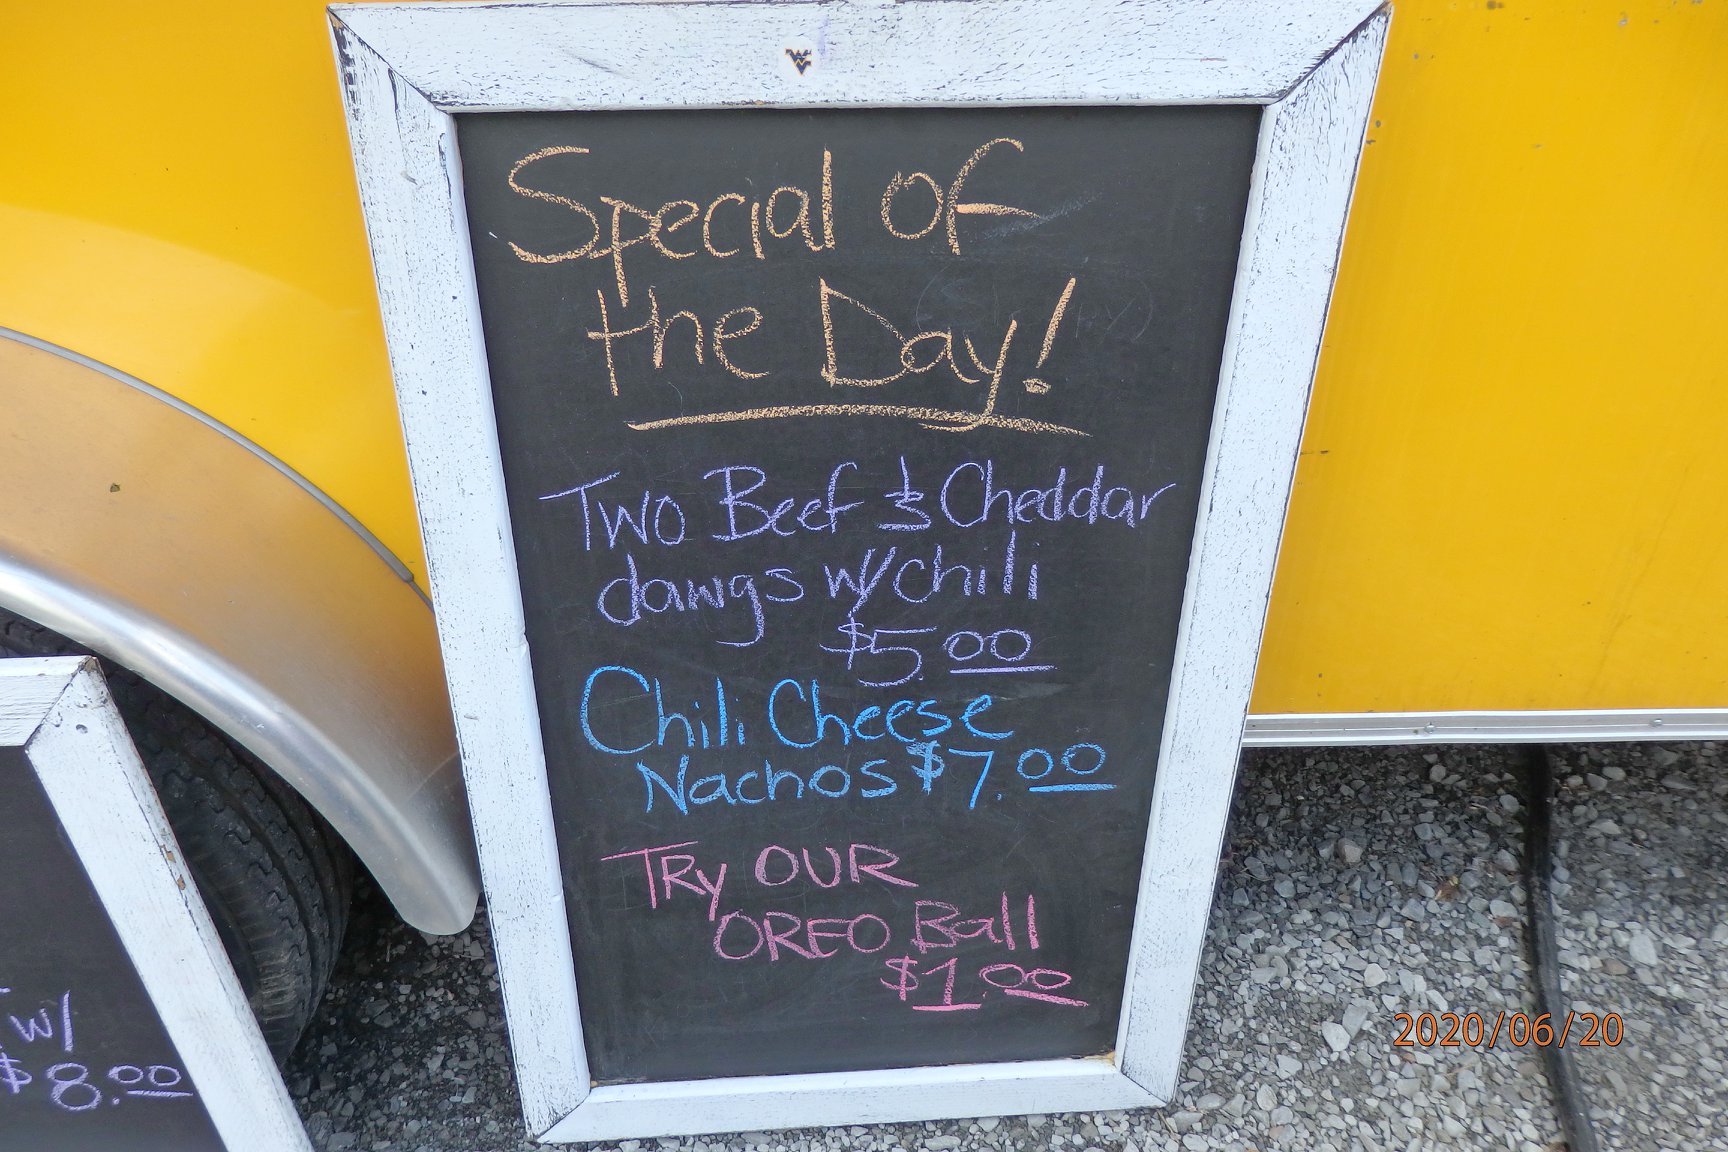 Special of
the Day!
Two Beef & Cheddar
dawgs w/chili
$5.00
Chili Cheese
Nachos $7.00
TRy OUR
OREO Ball
$1.00
w/
$8.00
2020/06/20